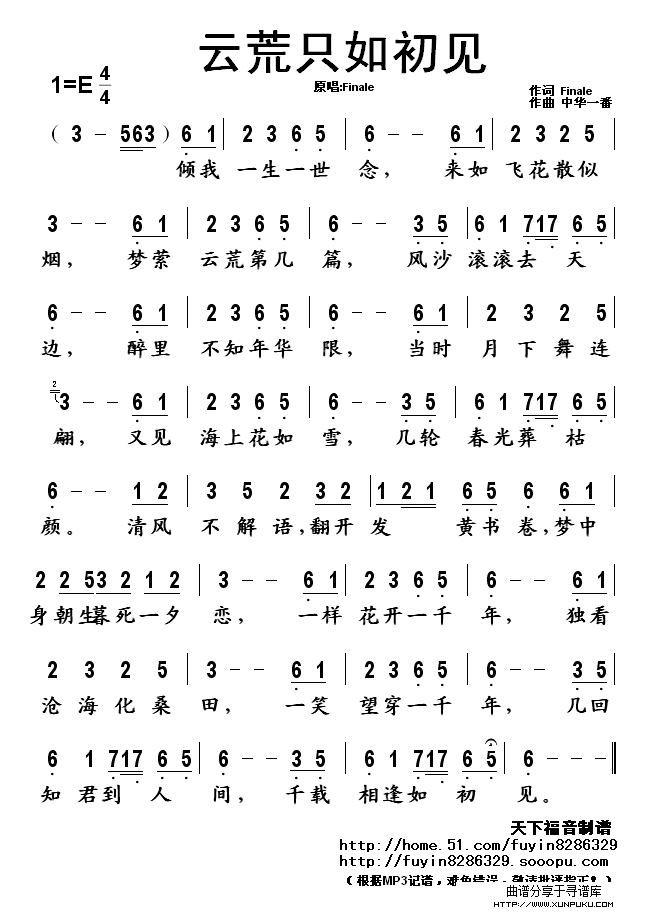 云荒只如初见
1=E 4/4
原唱:Finale
作词 Finale
作曲 中华一番
( 3 - 563 ) 6 1 | 2 3 6 5 | 6 - - 6 1 | 2 3 2 5 |
倾我 一生一世 念, 来如 飞花散似
3 - - 6 1 | 2 3 6 5 | 6 - - 3 5 | 6 1 717 6 5 |
烟, 梦萦 云荒第几 篇, 风沙 滚滚去 天
6 - - 6 1 | 2 3 6 5 | 6 - - 6 1 | 2 3 2 5 |
边, 醉里 不知年华 限, 当时 月下舞连
2 3 - - 6 1 | 2 3 6 5 | 6 - - 3 5 | 6 1 717 6 5 |
翩, 又见 海上花如 雪, 几轮 春光葬 枯
6 - - 1 2 | 3 5 2 3 2 | 1 2 1 6 5 6 6 1 |
颜。 清风 不解语,翻开 发 黄书卷,梦中
2 2 5 3 2 1 2 | 3 - - 6 1 | 2 3 6 5 | 6 - - 6 1 |
身朝生暮死一夕 恋, 一样 花开一千 年, 独看
2 3 2 5 | 3 - - 6 1 | 2 3 6 5 | 6 - - 3 5 |
沧海化桑 田, 一笑 望穿一千 年, 几回
6 1 717 6 5 | 6 - - 3 5 | 6 1 717 6 5 | 6 - - - ‖
知君到 人 间, 千载 相逢如 初 见。
天下福音制谱
http://home.51.com/fuyin8286329
http://fuyin8286329.sooopu.com
(根据MP3记谱,难免错误,敬请批评指正!)
曲谱分享于寻谱库
HTTP://WWW.XUNPUKU.COM